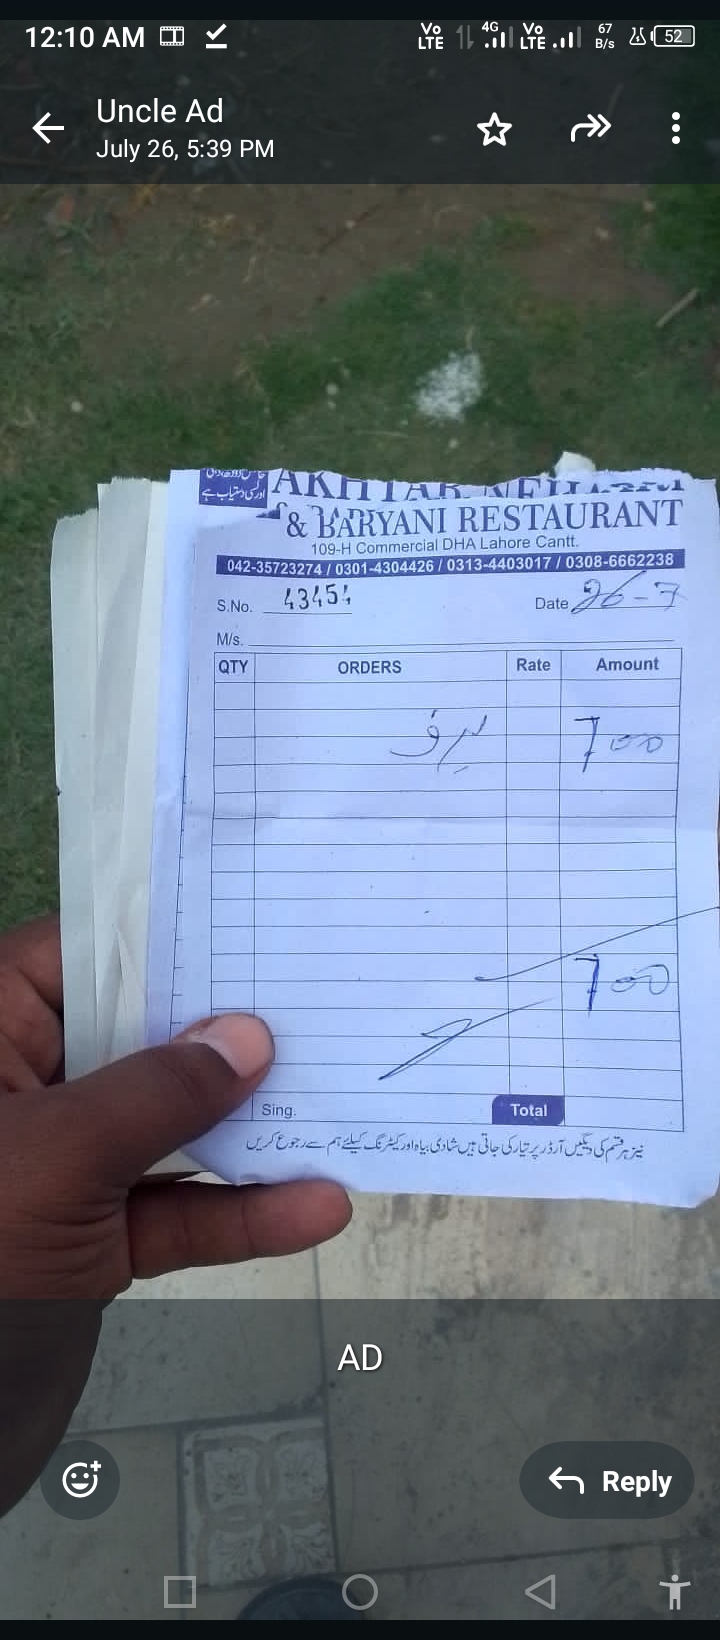 12:10 AM
Vo LTE 4G Vo LTE 67 B/s 52
Uncle Ad
July 26, 5:39 PM
اور کسی دستیاب ہے
AKHTAR NEHARI
& BARYANI RESTAURANT
109-H Commercial DHA Lahore Cantt.
042-35723274 / 0301-4304426 / 0313-4403017 / 0308-6662238
S.No. 43454 Date 26-7
M/s.
QTY ORDERS Rate Amount
برف 700
700
Sing. Total
نیز ہر قسم کی دیگیں آرڈر پر تیار کی جاتی ہیں شادی بیاہ اور کیٹرنگ کیلئے ہم سے رجوع کریں
AD
Reply